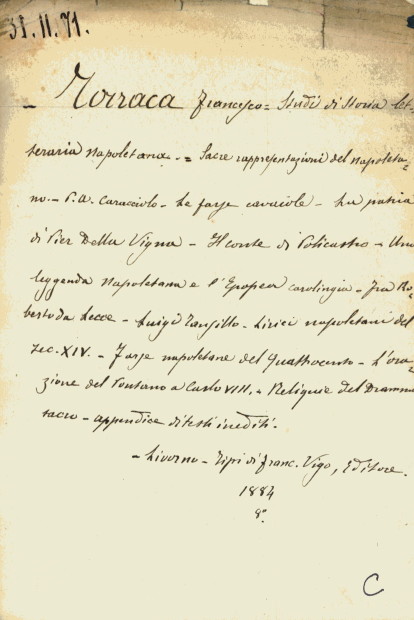 31.11.71.
– Torraca Francesco = Studi di Storia let-
teraria napoletana. = Sacre rappresentazioni del napoleta-
no. – P. A. Caracciolo – Le farse cavaiole – La patria
di Pier Della Vigna – Il conte di Policastro – Una
leggenda napoletana e l'Epopea carolingia – Fra Ro-
berto da Lecce – Luigi Tansillo – Lirici napoletani del
sec. XIV. – Farse napoletane del Quattrocento – L'ora-
zione del Pontano a Carlo VIII. – Reliquie del Dramma
sacro – appendice di testi inediti.
– Livorno – Tipi di Franc. Vigo, Editore.
1884
8°.
C